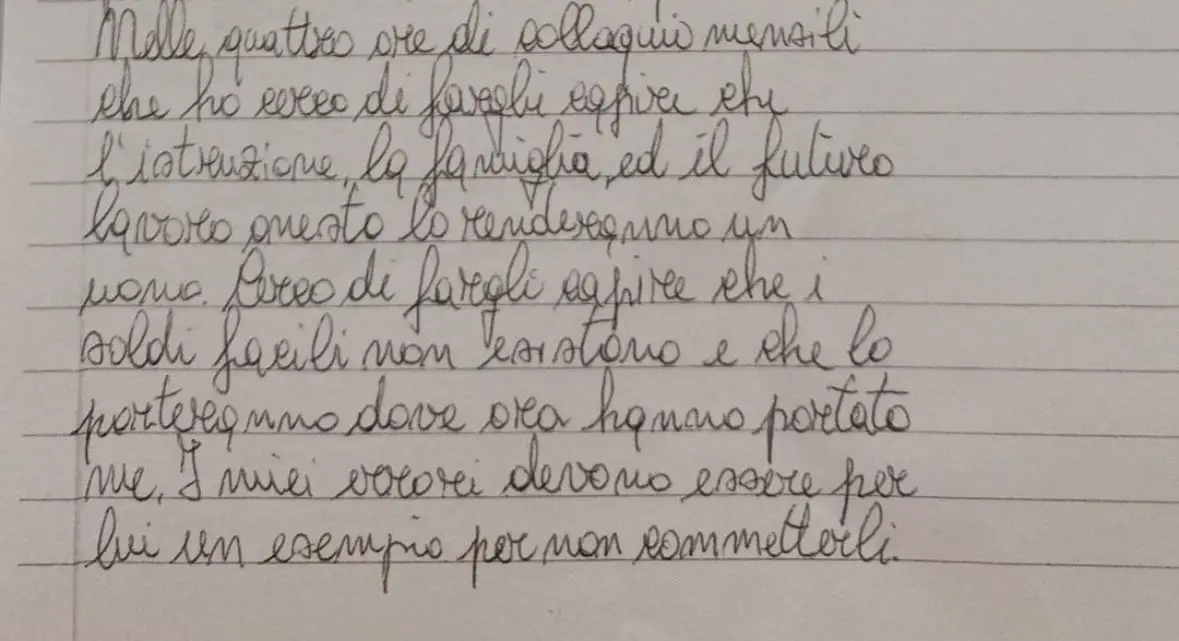 Nelle quattro ore di colloquio mensili
che ho cerco di fargli capire che
l'istruzione, la famiglia, ed il futuro
lavoro questo lo renderanno un
uomo. Cerco di fargli capire che i
soldi facili non esistono e che lo
porteranno dove ora hanno portato
me. I miei errori devono essere per
lui un esempio per non commetterli.